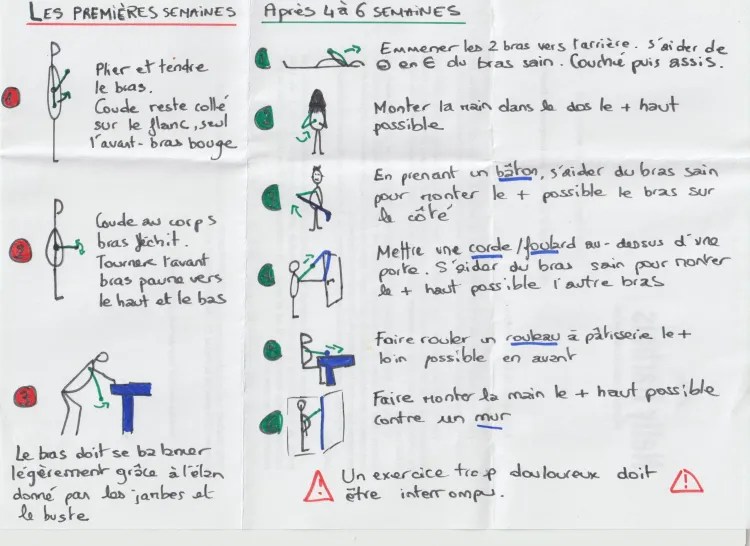 LES PREMIÈRES SEMAINES
1
Plier et tendre
le bras.
Coude reste collé
sur le flanc, seul
l'avant-bras bouge
2
Coude au corps
bras fléchit.
Tourner l'avant
bras paume vers
le haut et le bas
3
Le bas doit se balancer
légèrement grâce à l'élan
donné par les jambes et
le buste
Après 4 à 6 SEMAINES
Emmener les 2 bras vers l'arrière. S'aider de
en du bras sain. Couché puis assis.
Monter la main dans le dos le + haut
possible
En prenant un bâton, s'aider du bras sain
pour monter le + possible le bras sur
le côté
Mettre une corde/foulard au-dessus d'une
porte. S'aider du bras sain pour monter
le + haut possible l'autre bras
Faire rouler un rouleau à pâtisserie le +
loin possible en avant
Faire monter la main le + haut possible
contre un mur
Un exercice trop douloureux doit
être interrompu.